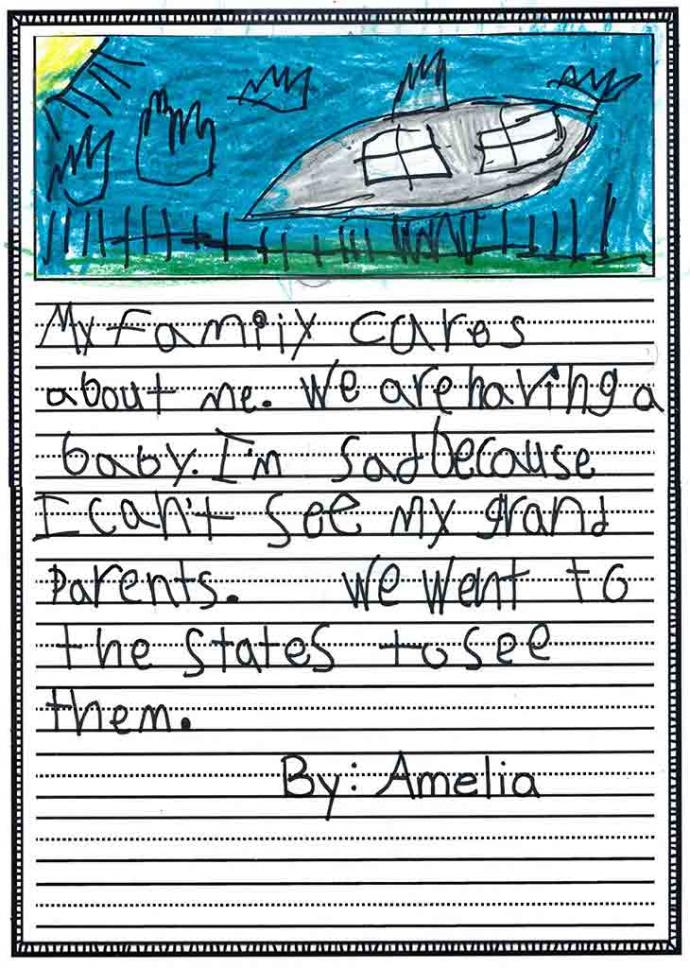 My family cares
about me. We are having a
baby. I'm sad because
I can't see my grand
parents. We went to
the states to see
them.
By: Amelia